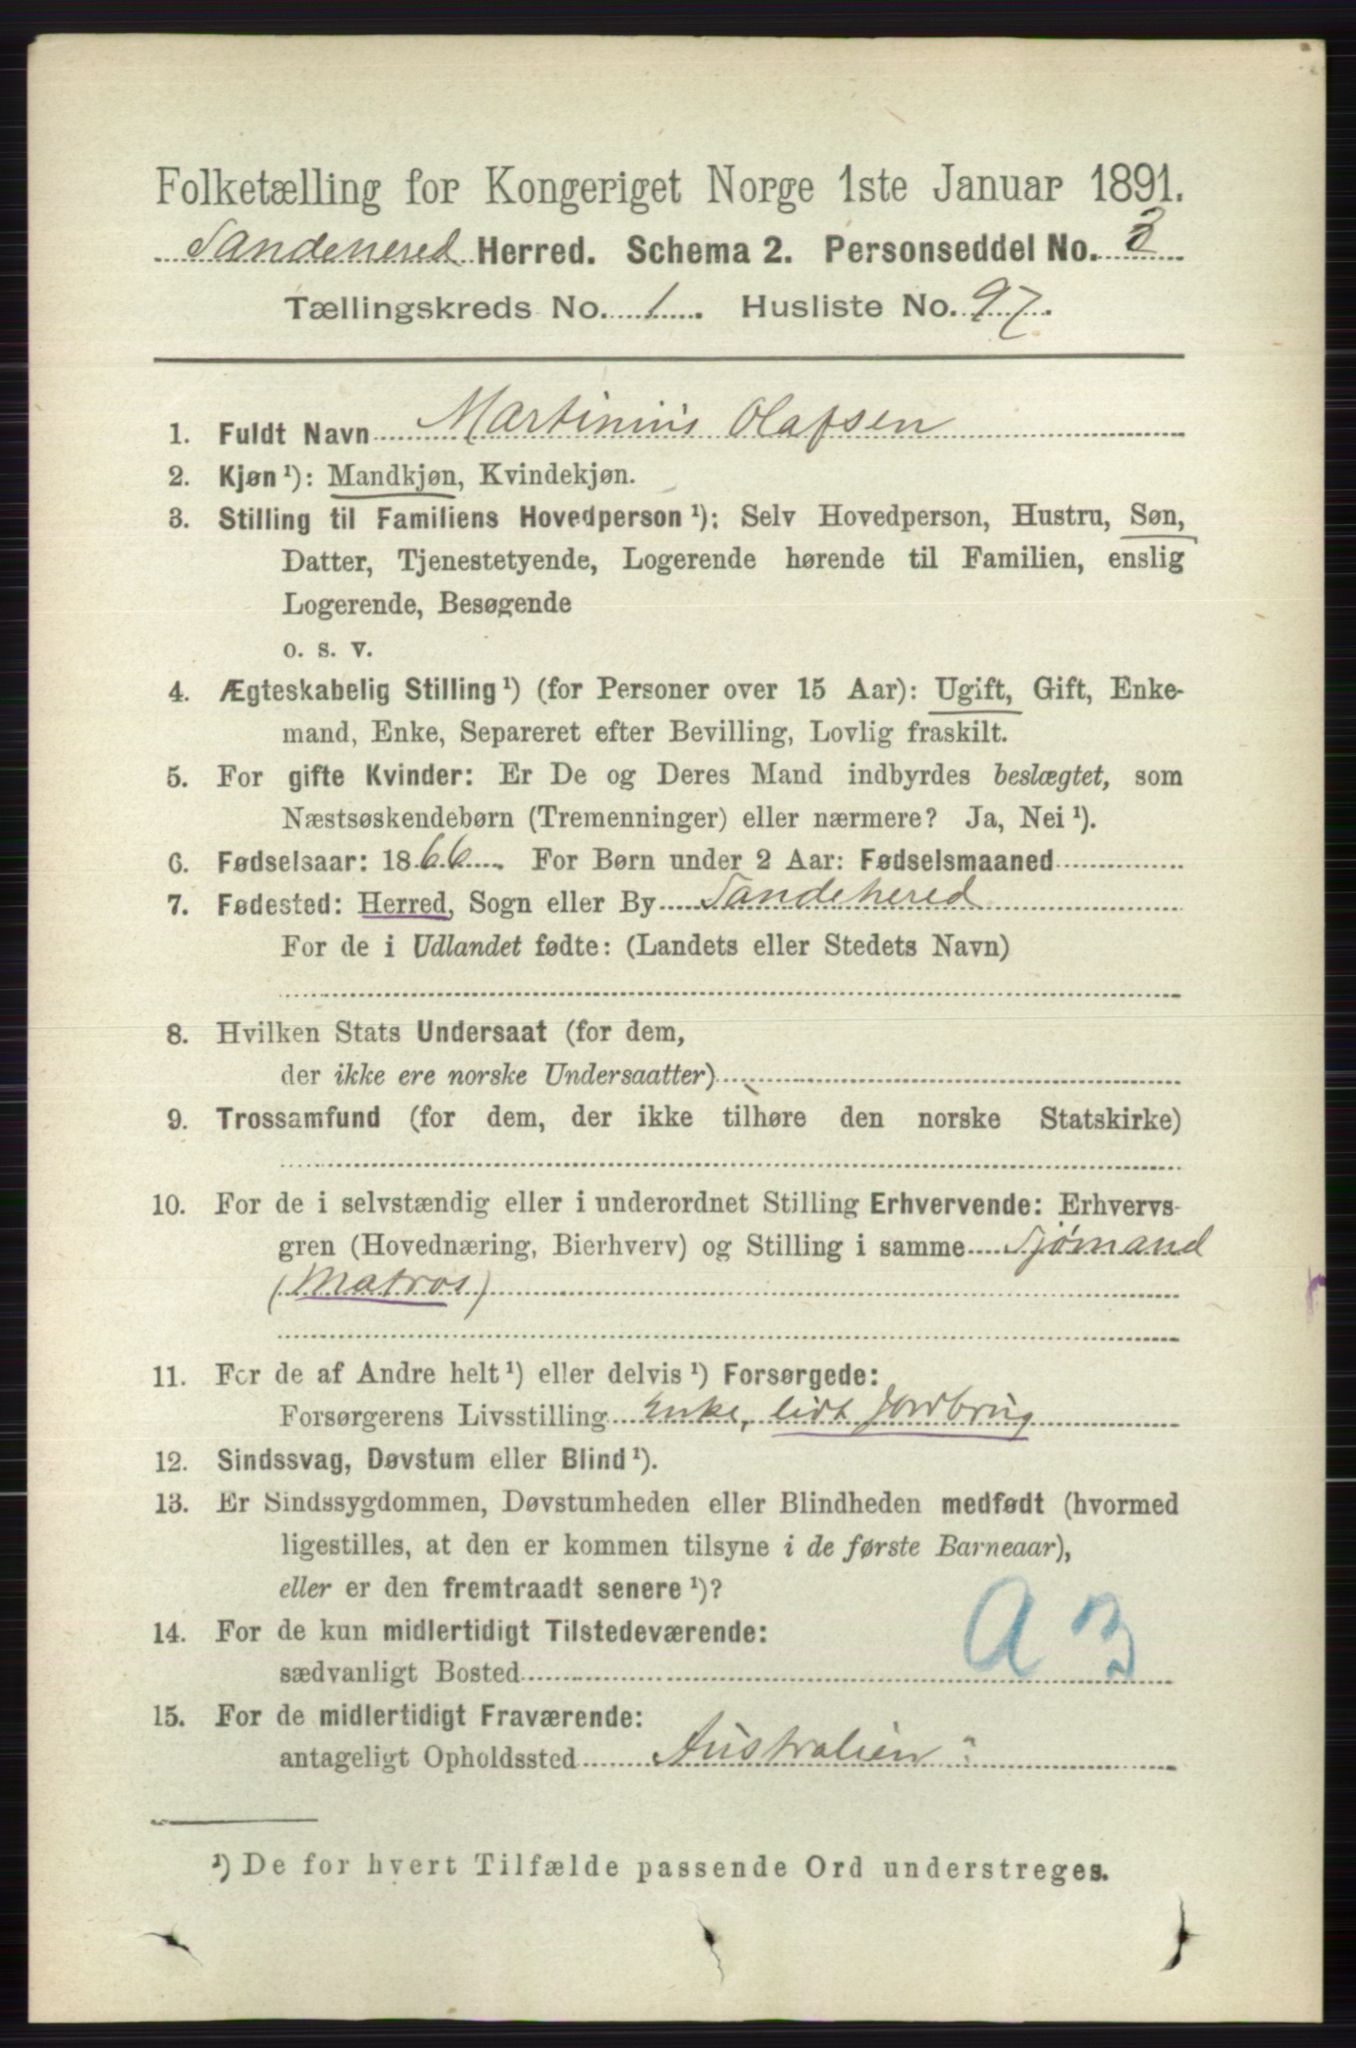 Folketælling for Kongeriget Norge 1ste Januar 1891.
Sandehered Herred. Schema 2. Personseddel No. 3
Tællingskreds No. 1. Husliste No. 97.
1. Fuldt Navn Martinius Olafsen
2. Kjøn ¹): Mandkjøn, Kvindekjøn.
3. Stilling til Familiens Hovedperson ¹): Selv Hovedperson, Hustru, Søn,
Datter, Tjenestetyende, Logerende hørende til Familien, enslig
Logerende, Besøgende
o. s. v.
4. Ægteskabelig Stilling ¹) (for Personer over 15 Aar): Ugift, Gift, Enke-
mand, Enke, Separeret efter Bevilling, Lovlig fraskilt.
5. For gifte Kvinder: Er De og Deres Mand indbyrdes beslægtet, som
Næstsøskendebørn (Tremenninger) eller nærmere? Ja, Nei ¹).
6. Fødselsaar: 1866. For Børn under 2 Aar: Fødselsmaaned
7. Fødested: Herred, Sogn eller By Sandehered
For de i Udlandet fødte: (Landets eller Stedets Navn)
8. Hvilken Stats Undersaat (for dem,
der ikke ere norske Undersaatter)
9. Trossamfund (for dem, der ikke tilhøre den norske Statskirke)
10. For de i selvstændig eller i underordnet Stilling Erhvervende: Erhvervs-
gren (Hovednæring, Bierhverv) og Stilling i samme Sjømand
(Matros)
11. For de af Andre helt ¹) eller delvis ¹) Forsørgede:
Forsørgerens Livsstilling Enke, lidt Jordbrug
12. Sindssvag, Døvstum eller Blind ¹).
13. Er Sindssygdommen, Døvstumheden eller Blindheden medfødt (hvormed
ligestilles, at den er kommen tilsyne i de første Barneaar),
eller er den fremtraadt senere ¹)?
14. For de kun midlertidigt Tilstedeværende:
sædvanligt Bosted
A 3
15. For de midlertidigt Fraværende:
antageligt Opholdssted Australien?
¹) De for hvert Tilfælde passende Ord understreges.